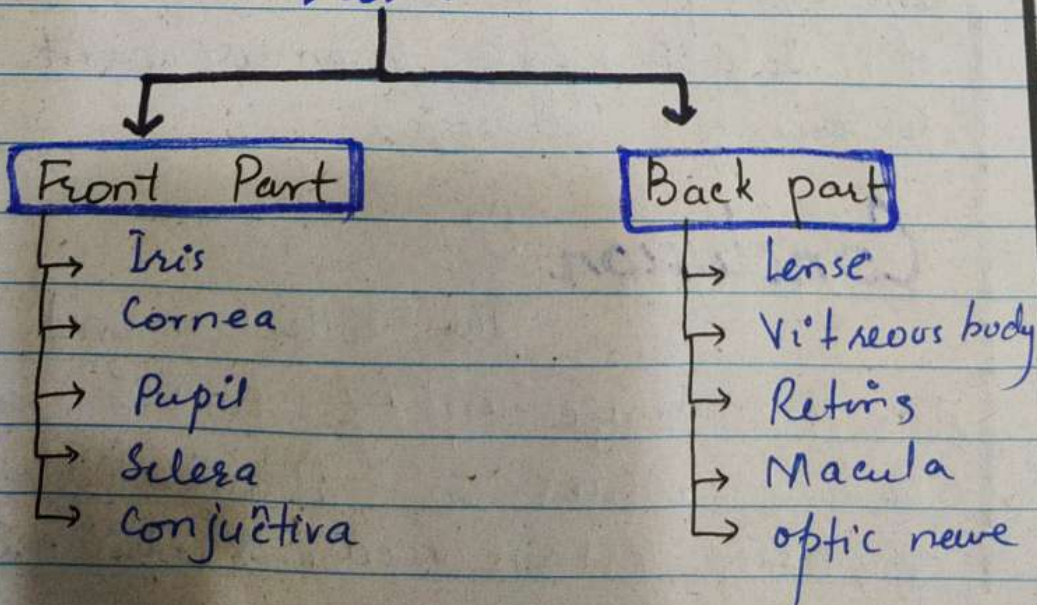 Front Part
Iris
Cornea
Pupil
Sclera
Conjuctiva
Back part
Lense
Vitreous body
Retina
Macula
optic nerve